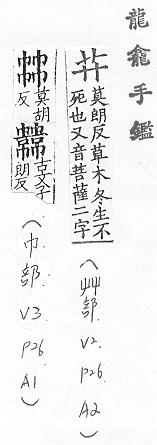 龍龕手鑑
𦬇莫朗反草木冬生不
死也又音菩薩二字
(艸部. V2. P26. A2)
莫胡
反
古文子
朗反
(巾部. V3 P26 A1)